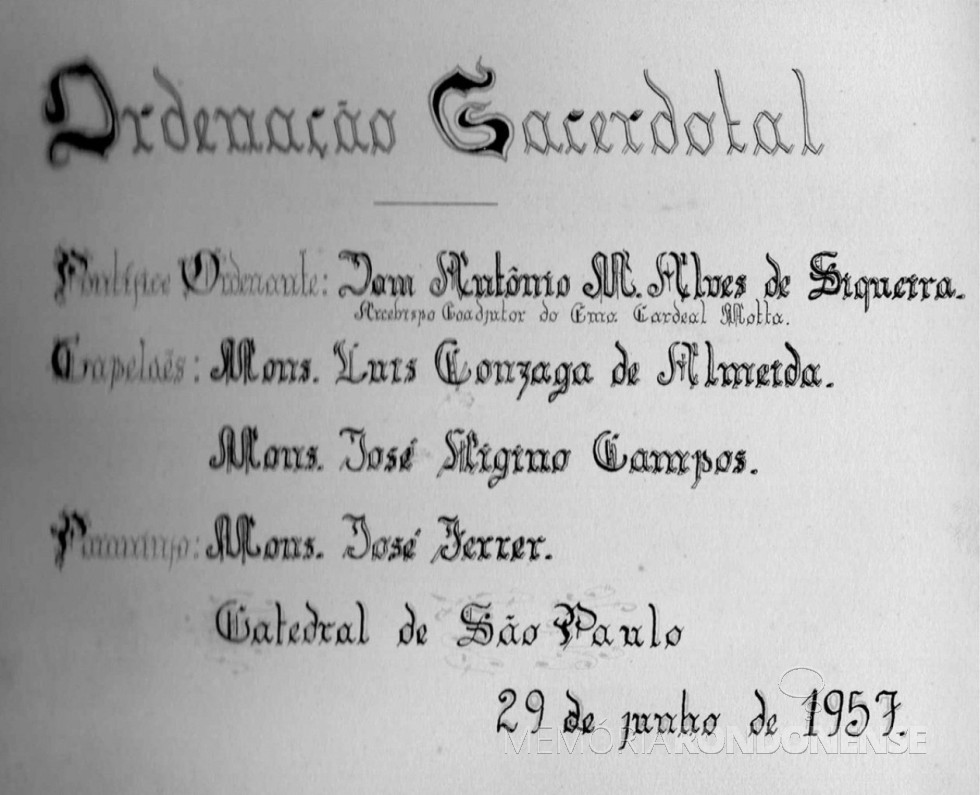 Ordenação Sacerdotal
Pontífice Ordenante: Dom Antônio M. Alves de Siqueira.
Arcebispo Coadjutor do Emo. Cardeal Motta.
Capelaẽs: Mons. Luis Gonzaga de Almeida.
Mons. José Higino Campos.
Paraninfo: Mons. José Ferrer.
Catedral de São Paulo
29 de junho de 1957.
MEMÓRIARONDONENSE